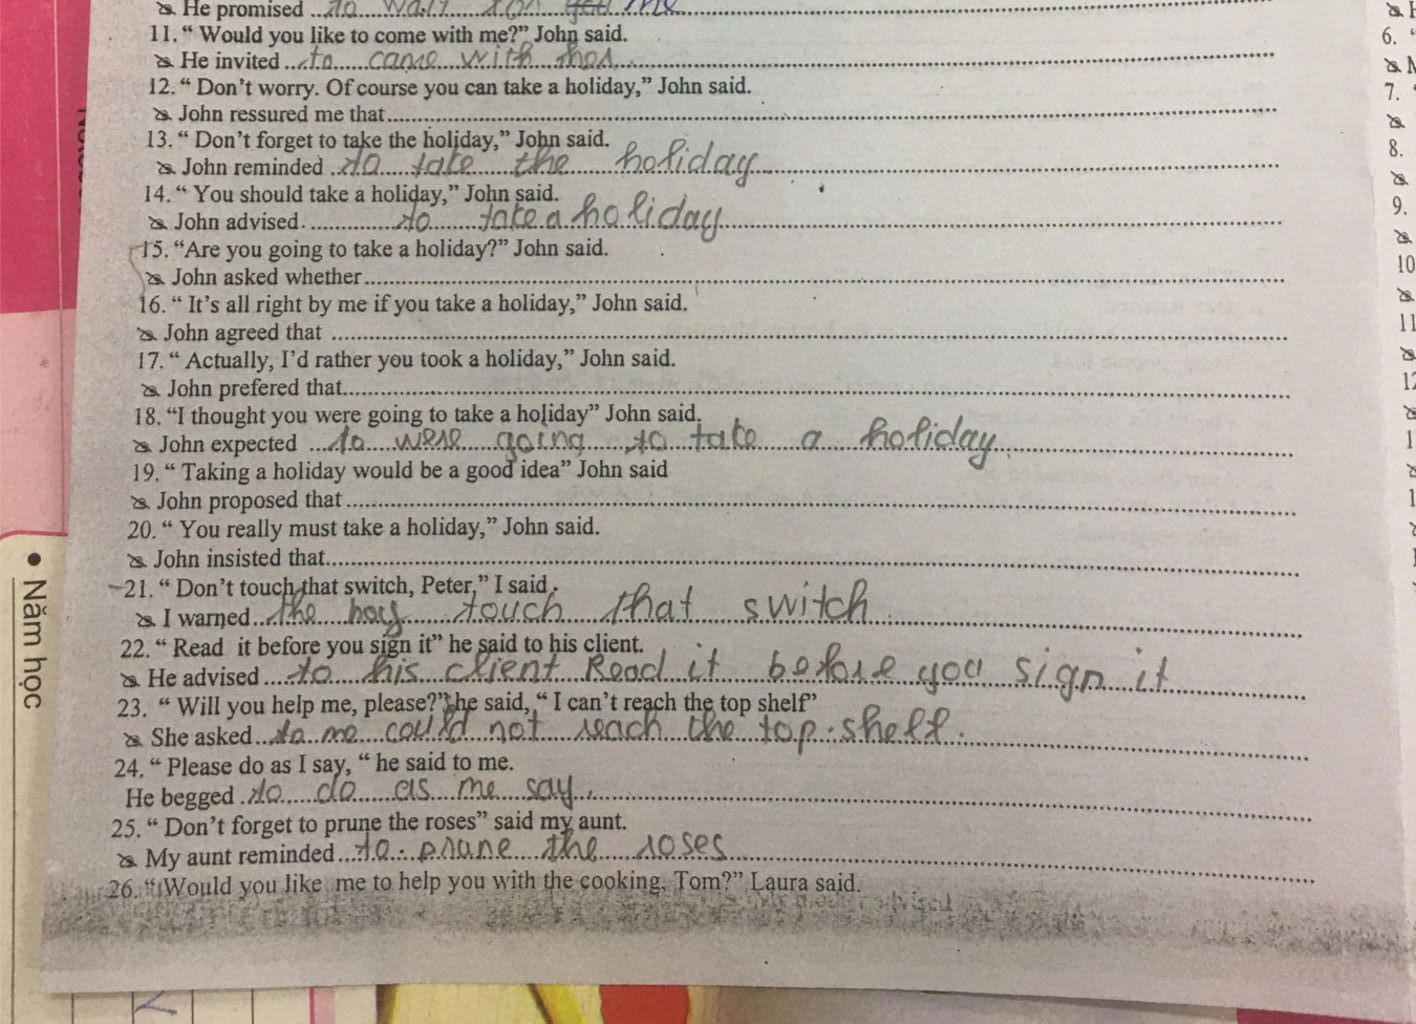 He promised to wait for you me
11. “ Would you like to come with me?” John said.
He invited to came with
12. “ Don’t worry. Of course you can take a holiday,” John said.
John ressured me that
13. “ Don’t forget to take the holiday,” John said.
John reminded to take the holiday
14. “ You should take a holiday,” John said.
John advised to take a holiday
15. “Are you going to take a holiday?” John said.
John asked whether
16. “ It’s all right by me if you take a holiday,” John said.
John agreed that
17. “ Actually, I’d rather you took a holiday,” John said.
John prefered that
18. “I thought you were going to take a holiday” John said.
John expected to were going to take a holiday
19. “ Taking a holiday would be a good idea” John said
John proposed that
20. “ You really must take a holiday,” John said.
John insisted that
21. “ Don’t touch that switch, Peter,” I said .
I warned the boy touch that switch
22. “ Read it before you sign it” he said to his client.
He advised to his client Read it before you sign it
23. “ Will you help me, please?” he said, “ I can’t reach the top shelf”
She asked to me could not reach the top shelf.
24. “ Please do as I say, “ he said to me.
He begged to do as me say
25. “ Don’t forget to prune the roses” said my aunt.
My aunt reminded to prune the roses
26. “ Would you like me to help you with the cooking, Tom?” Laura said.
• Năm học
6.
7.
8.
9.
10
11
12